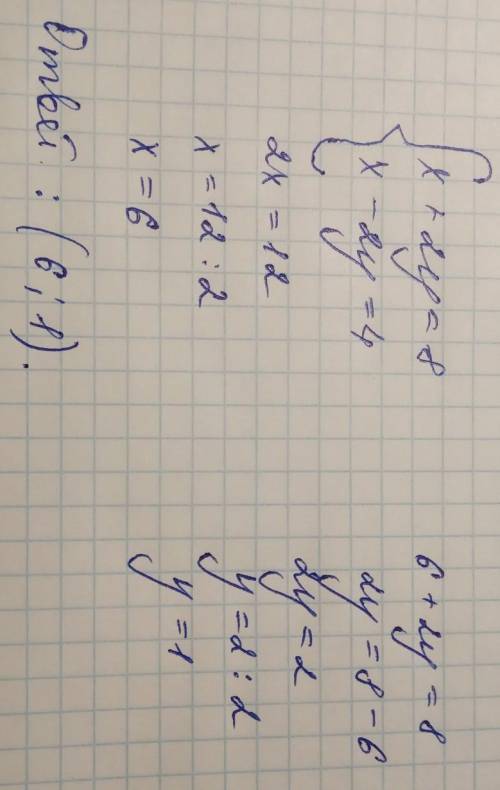 x + 2y = 8
x - 2y = 4
2x = 12
x = 12 : 2
x = 6
6 + 2y = 8
2y = 8 - 6
2y = 2
y = 2 : 2
y = 1
Ответ : (6 ; 1).